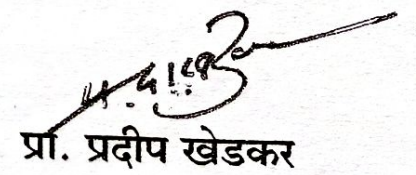 प्रा. प्रदीप खेडकर